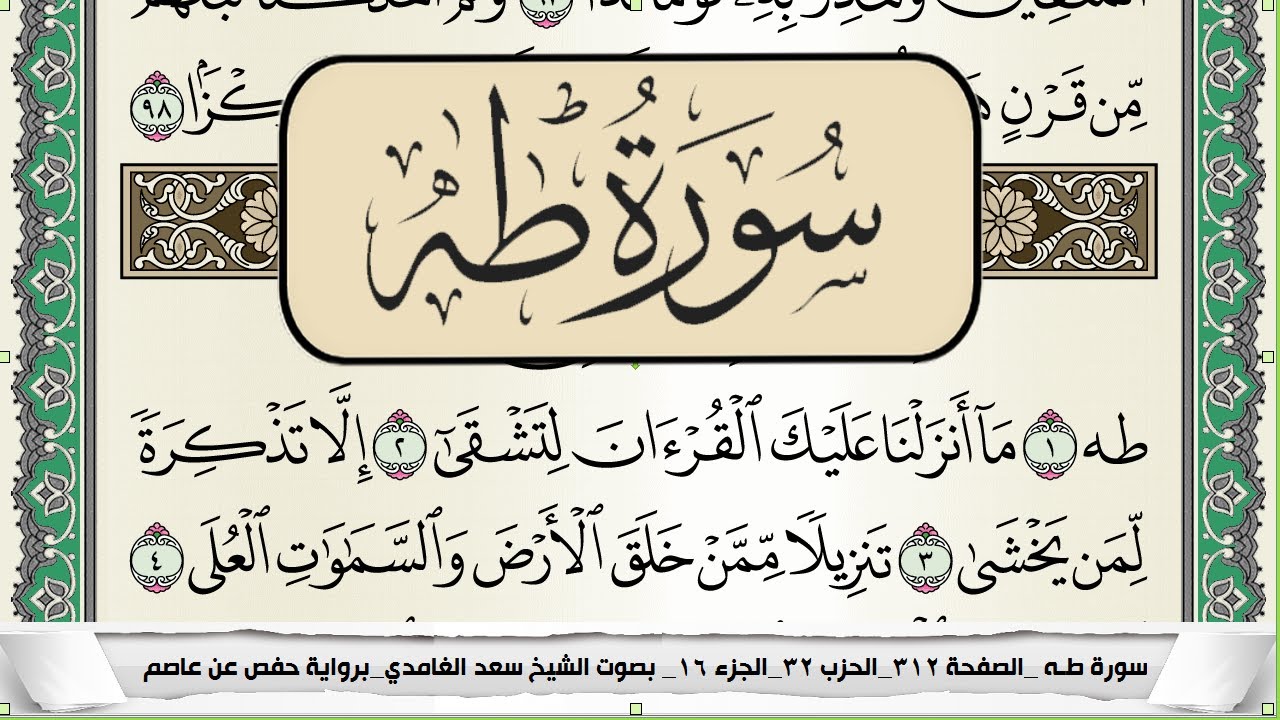 مِّن قَرْنٍ
٩٨
سُورَةُ طه
طه ١ مَآ أَنزَلْنَا عَلَيْكَ ٱلْقُرْءَانَ لِتَشْقَىٰٓ ٢ إِلَّا تَذْكِرَةً
لِّمَن يَخْشَىٰ ٣ تَنزِيلًا مِّمَّنْ خَلَقَ ٱلْأَرْضَ وَٱلسَّمَٰوَٰتِ ٱلْعُلَى ٤
سورة طـه _الصفحة ٣١٢_الحزب ٣٢_الجزء ١٦_ بصوت الشيخ سعد الغامدي_برواية حفص عن عاصم